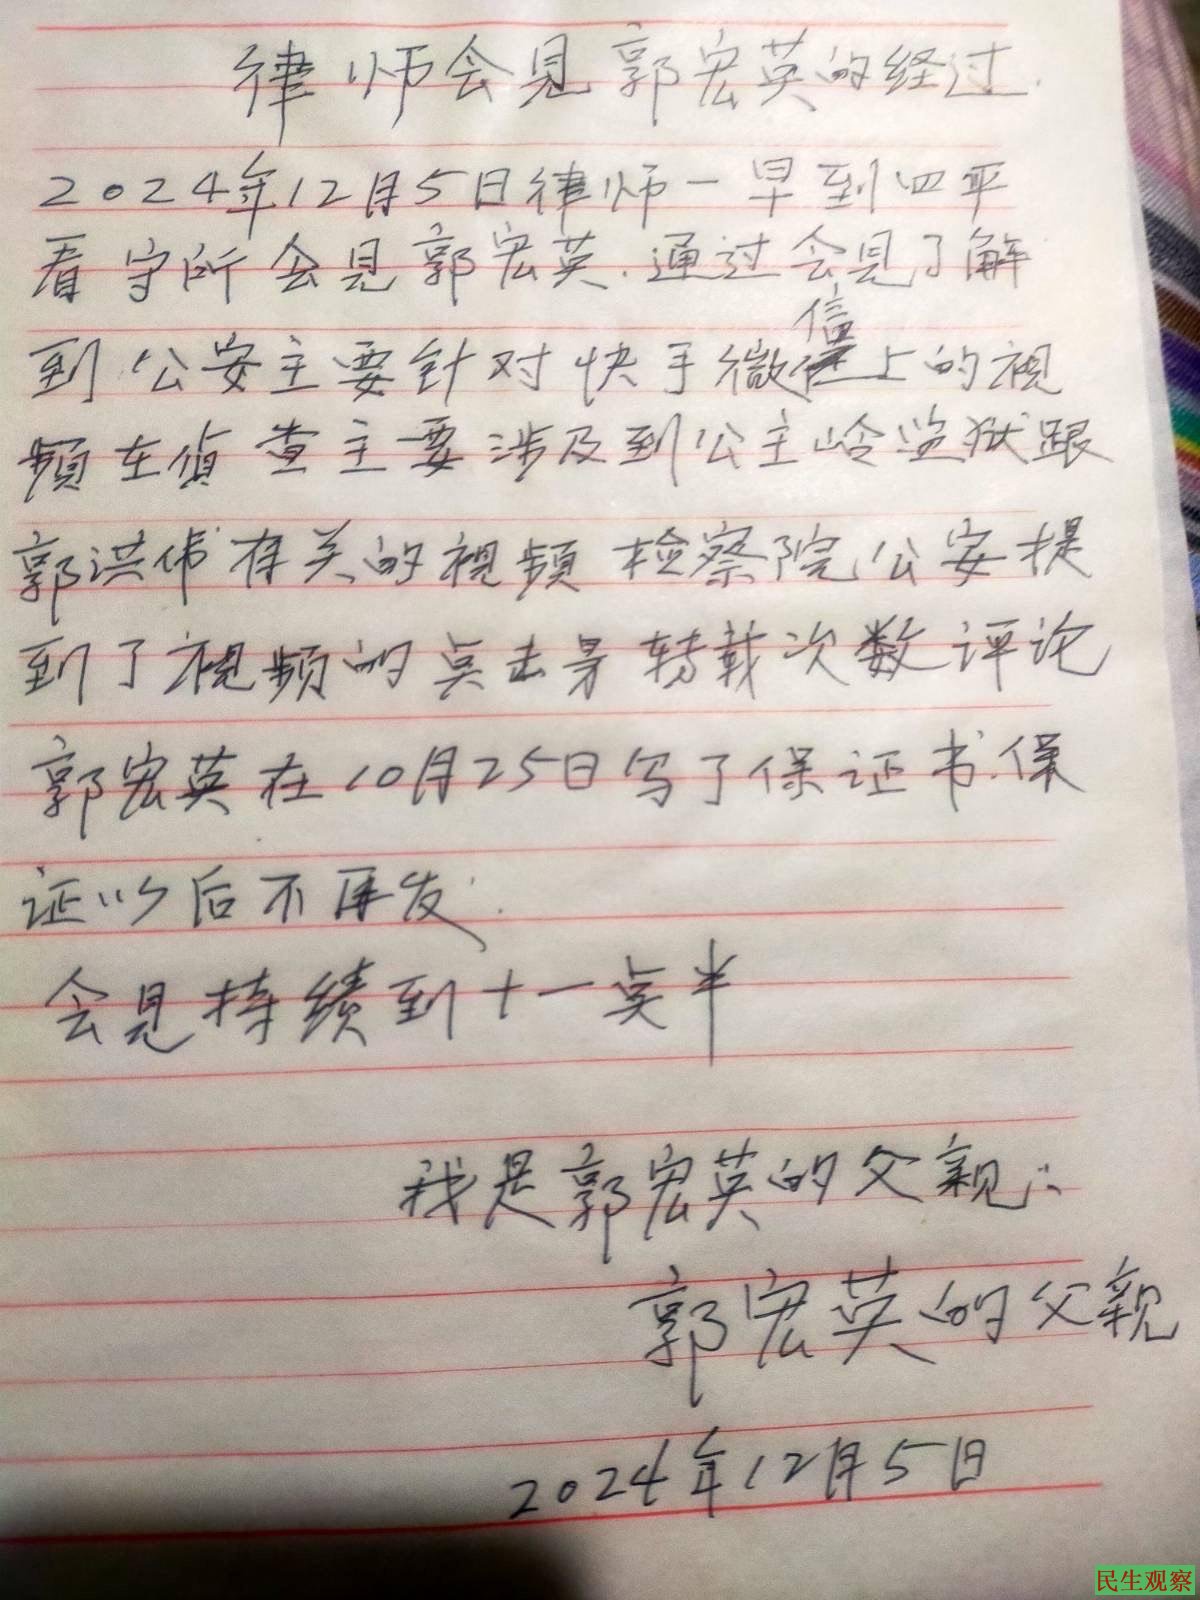 律师会见郭宏英的经过.
2024年12月5日律师一早到四平
看守所会见郭宏英.通过会见了解
信
到公安主要针对快手微上的视
频在侦查主要涉及到公主岭监狱跟
郭洪伟有关的视频 检察院公安提
到了视频的点击量转载次数评论
郭宏英在10月25日写了保证书.保
证以后不再发.
会见持续到十一点半
我是郭宏英的父亲:
郭宏英的父亲
2024年12月5日
民生观察